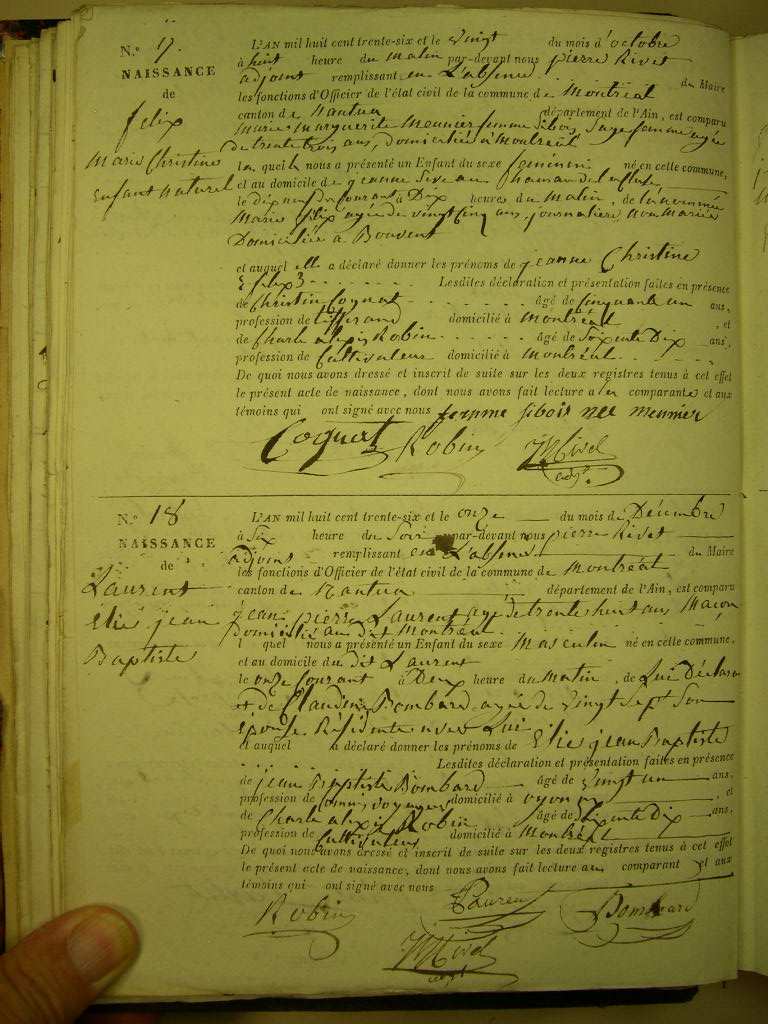 N.° 17.
NAISSANCE
de
felix
Marie Christine
Enfant Naturel
L'AN mil huit cent trente-six et le vingt du mois d'octobre
à huit heure du Matin par-devant nous pierre Rivet
adjoint remplissant en L'absence du Maire
les fonctions d'Officier de l'état civil de la commune de Montréal
canton de Nantua département de l'Ain, est comparu
Marie Marguerite Meunier femme Sibois, Sage femme agée
de trente trois ans, domiciliée à Montréal
laquelle nous a présenté un Enfant du sexe feminin né en cette commune,
et au domicile de jeanne
le dix neuf du Courant à Dix heures du Matin, de la nommée
Marie felix agée de vingt cinq ans, journalière non Mariée
Domiciliée a Bouvent
et auquel elle a déclaré donner les prénoms de jeanne Christine
Lesdites déclaration et présentation faites en présence
de Christin Cognat âgé de Cinquante un ans,
profession de tisserand domicilié à Montréal, et
de Charle alexis Robin âgé de Soixente Dix ans,
profession de Cultivateur domicilié à Montréal
De quoi nous avons dressé et inscrit de suite sur les deux registres tenus à cet effet
le présent acte de naissance, dont nous avons fait lecture a la comparante et aux
témoins qui ont signé avec nous femme sibois nee meunier
Coguet Robin Rivet
adj.t
N.° 18
NAISSANCE
de
Laurent
Elie jean
Baptiste
L'AN mil huit cent trente-six et le onze du mois de Décembre
à Six heure du Soir par-devant nous pierre Rivet
adjoint remplissant en L'absence du Maire
les fonctions d'Officier de l'état civil de la commune de Montréal
canton de Nantua département de l'Ain, est comparu
jean pierre Laurent agé de trente huit ans Macon
domicilié au dit Montréal
l quel nous a présenté un Enfant du sexe Masculin né en cette commune,
et au domicile du dit Laurent
le onze Courant à Deux heure du Matin, de Lui Déclarant
et de Claudine Bombard agée de vingt Sept Son
Epouse Résidente avec Lui
et auquel a déclaré donner les prénoms de Elie jean Baptiste
Lesdites déclaration et présentation faites en présence
de jean Baptiste Bombard âgé de vingt un ans,
profession de Commis voyageur domicilié à oyonax, et
de Charle alexis Robin âgé de Soixente Dix ans,
profession de Cultivateur domicilié à Montréal
De quoi nous avons dressé et inscrit de suite sur les deux registres tenus à cet effet
le présent acte de naissance, dont nous avons fait lecture au comparant et aux
témoins qui ont signé avec nous
Robin Laurent Bombard
Rivet
adj.t